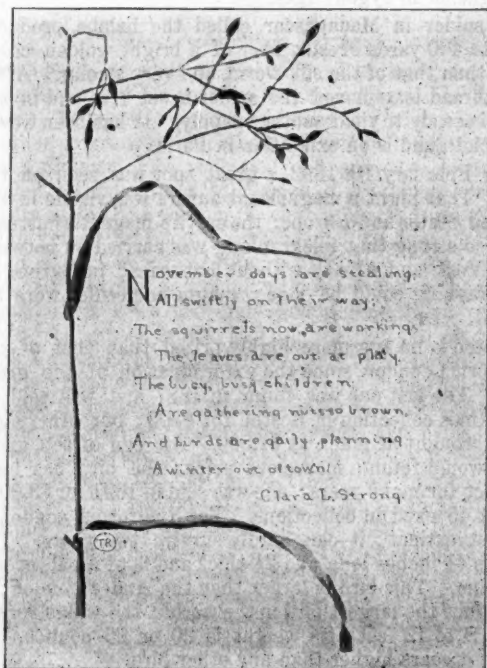 November days are stealing;
All swiftly on their way;
The squirrels now are working,
The leaves are out at play.
The busy, busy children,
Are gathering nuts so brown,
And birds are gaily planning
A winter out of town!
Clara L. Strong.
TR